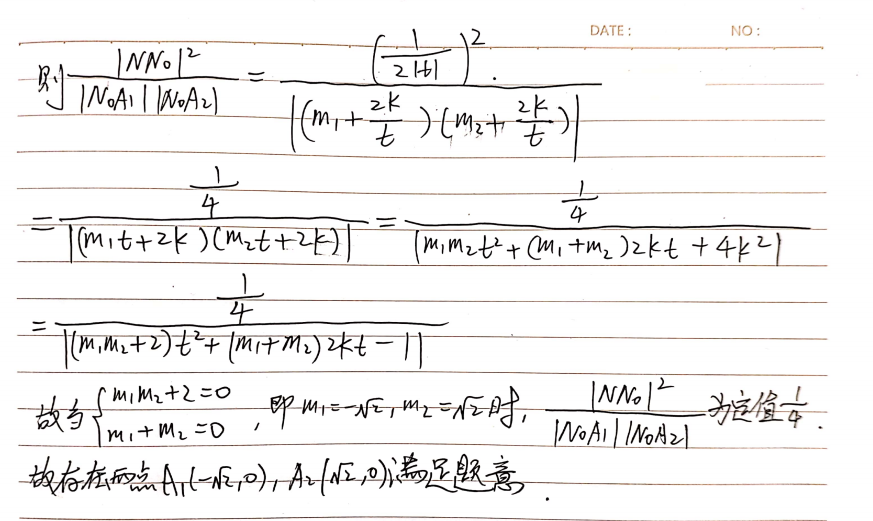 DATE: NO:
则 |NN₀|²/(|N₀A₁||N₀A₂|) = (1/(2|t|))²/|(m₁+2k/t)(m₂+2k/t)|
= (1/4)/|(m₁t+2k)(m₂t+2k)| = (1/4)/|m₁m₂t²+(m₁+m₂)2kt+4k²|
= (1/4)/|(m₁m₂+2)t²+(m₁+m₂)2kt-1|
故当{m₁m₂+2=0, m₁+m₂=0, 即m₁=-√2, m₂=√2时, |NN₀|²/(|N₀A₁||N₀A₂|)为定值1/4.
故存在两点A₁(-√2,0), A₂(√2,0)满足题意.